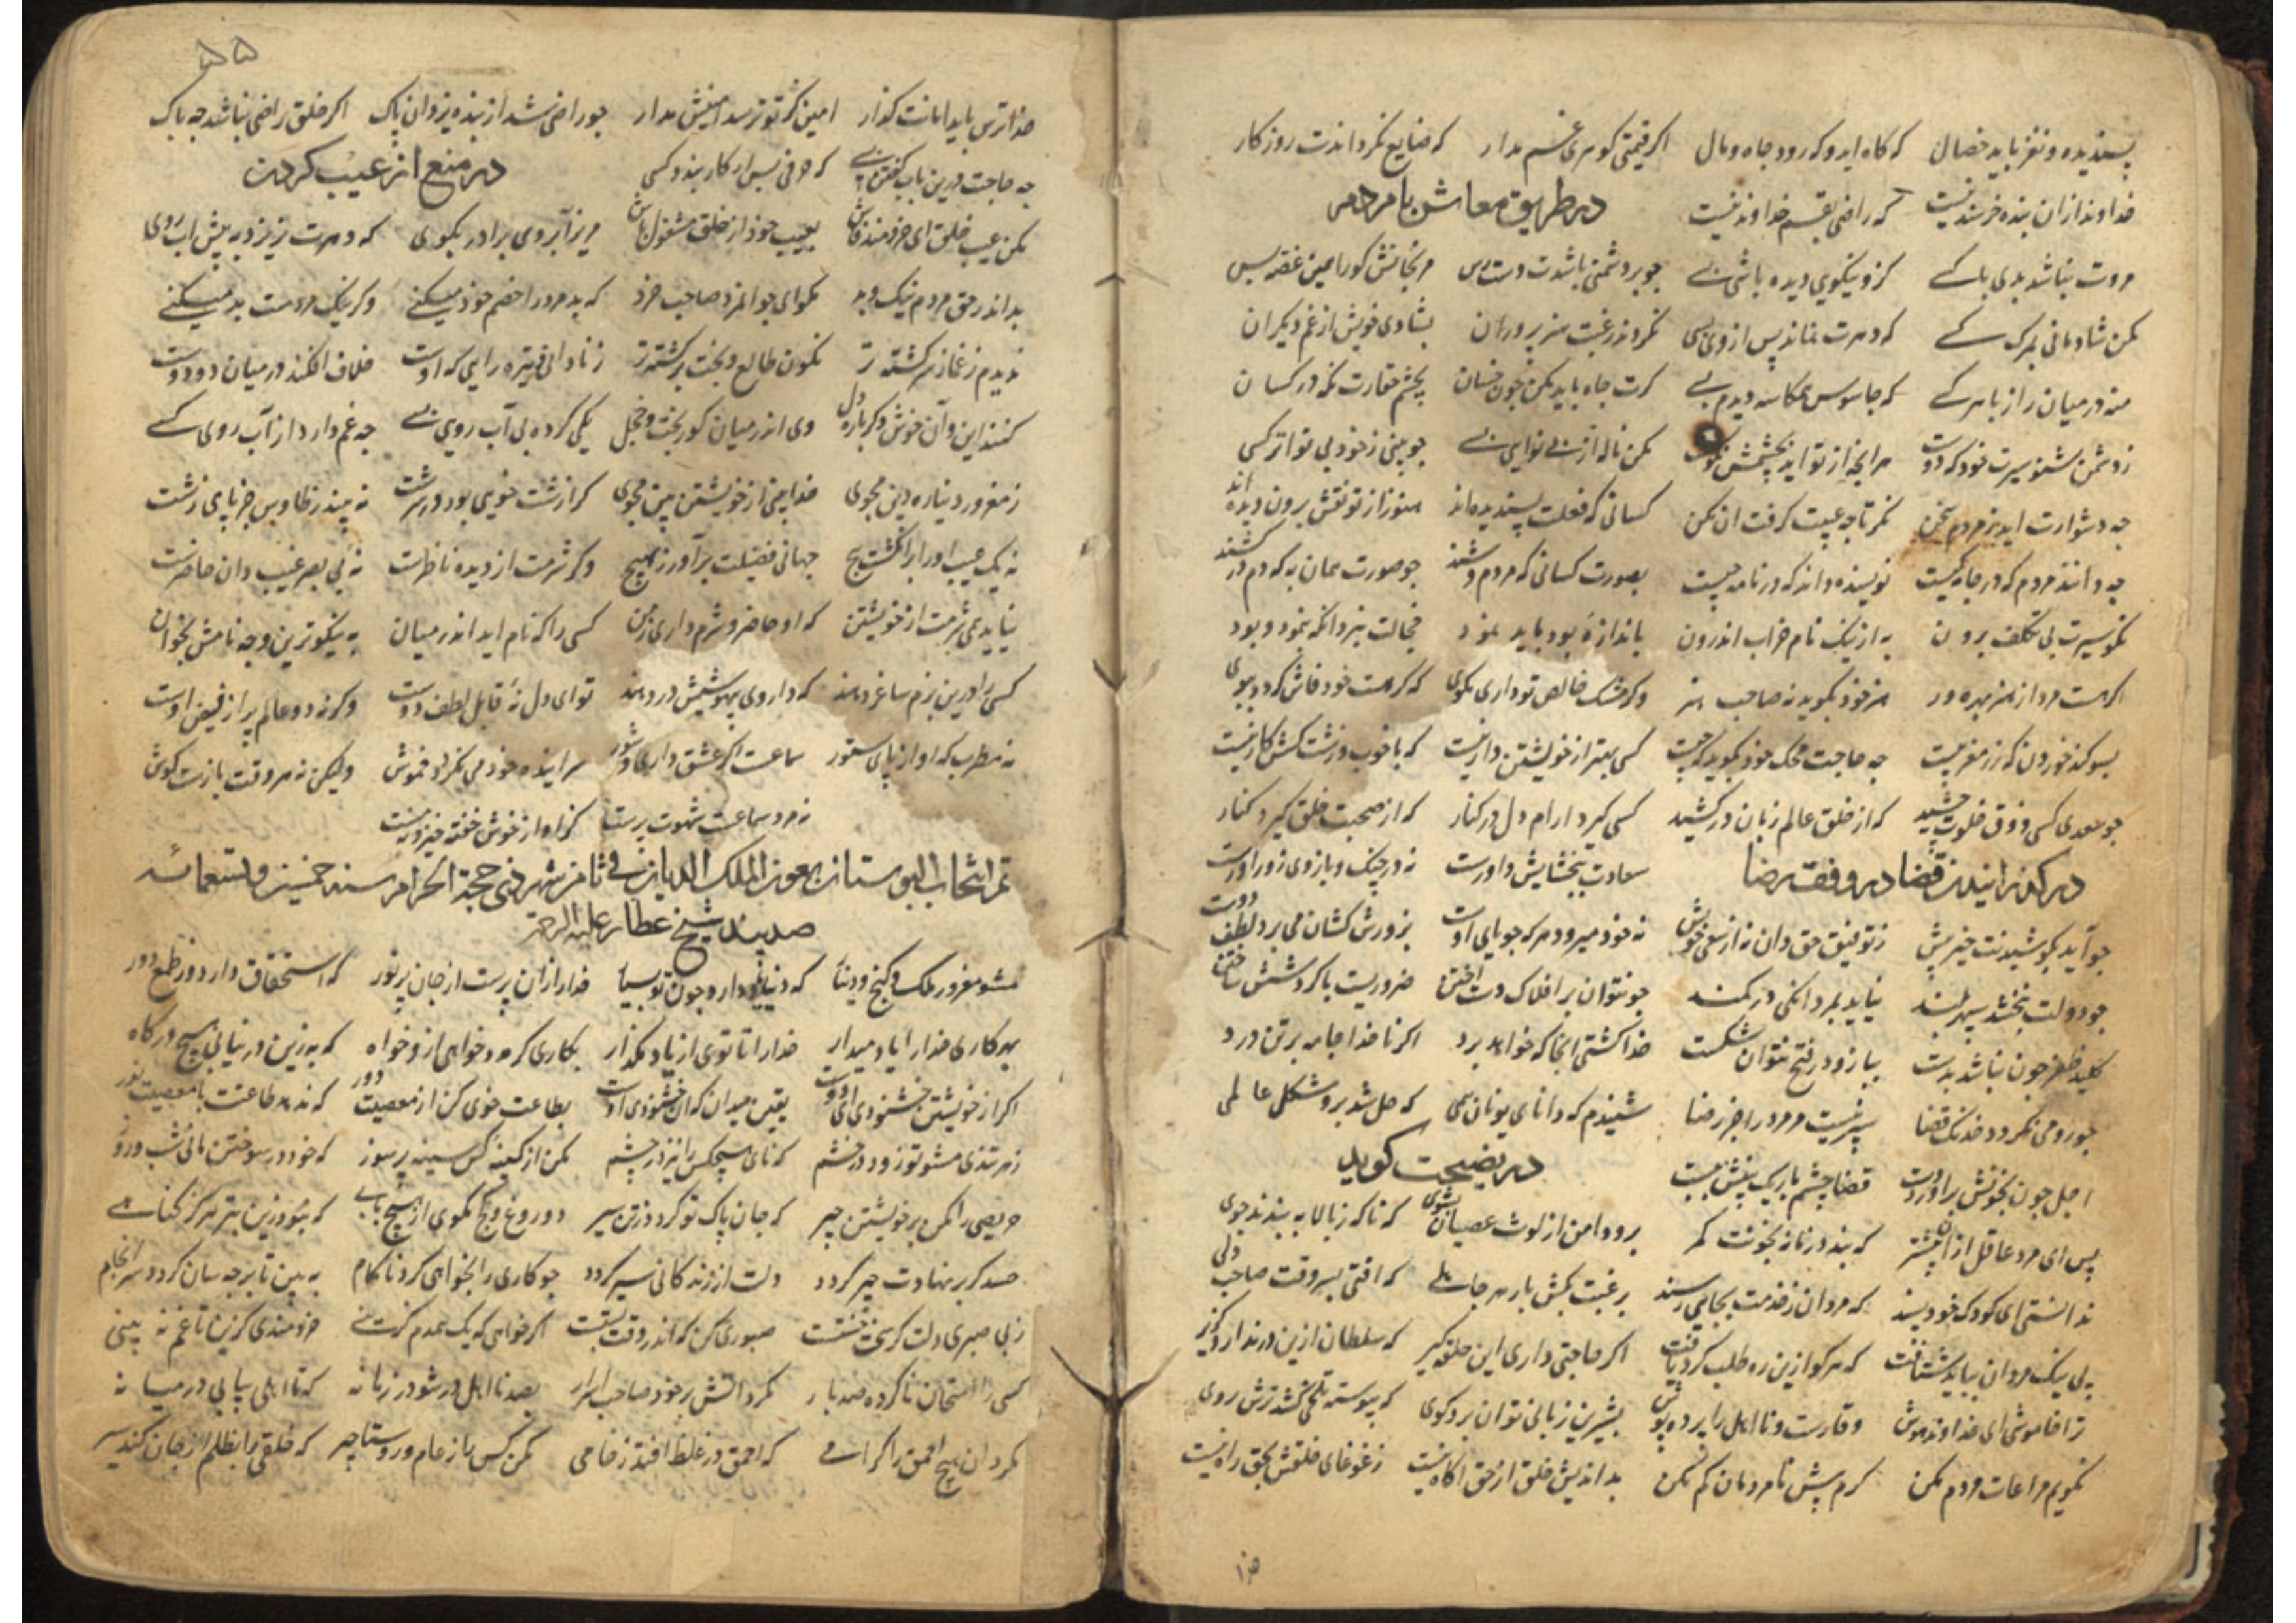 پسندیده و نغز باید خصال که کاه اید و که رود جاه و مال اکر قیمتی کوهری غم مدار که ضایع نکرداندت روزکار
در طریق معاش با مردم
خداوند ازان بنده خرسند نیست که راضی بقسم خداوند نیست
مروت نباشد بدی با کسے کزو نیکویی دیده باشی بسے چو بر دشمنی باشدت دسترس مرنجانش کورا همین غصه بس
مکن شادمانی بمرک کسے که دهرت نماند پس از وی بسی نکردند رغبت هنرپروران بشادی خویش از غم دیکران
منه در میان راز با هر کسے که جاسوس همکاسه دیدم بسے کرت جاه باید مکن چون خسان بچشم حقارت نکه در کسان
ز دشمن شنو سیرت خود که دوست هرانچه از تو اید بچشمش نکوست مکن ناله از بے نوایی بسے چو بینی ز خود بی نواتر کسی
چه دشوارت اید ز مردم سخن نکر تا چه عیبت کرفت ان مکن کسانی که فعلت پسندیده اند هنوز از تو نقش برون دیده اند
چه دانند مردم که در جامه کیست نویسنده داند که در نامه چیست بصورت کسانی که مردم وشند چو صورت همان به که دم درکشند
نکو سیرت بی تکلف برون به از نیک نام خراب اندرون باندازه بود باید نمود خجالت نبرد انکه ننمود و بود
اکر هست مرد از هنر بهره ور هنر خود بکوید نه صاحب هنر وکر مشک خالص تو داری مکوی که کر هست خود فاش کردد ببوی
بسوکند خوردن که زر مغربیست چه حاجت محک خود بکوید که چیست کسی بهتر از خویشتن دار نیست که با خوب و زشت کسش کار نیست
چو سعدی کسی ذوق خلوت چشید که از خلق عالم زبان درکشید کسی کیرد ارام دل در کنار که از صحبت خلق کیرد کنار
در کذرانیدن قضا در وفق رضا سعادت ببخشایش داورست نه در چنک و بازوی زوراورست
چو آید بکوشیدنت خیر پیش ز توفیق حق دان نه از سعی خویش نه خود میرود هر که جویای اوست بزورش کشان می برد لطف دوست
چو دولت نبخشد سپهر بلند نیاید بمردانکی در کمند چو نتوان بر افلاک دست اختن ضروریست با کردشش ساختن
کلید ظفر چون نباشد بدست ببازو در فتح نتوان شکست خدا کشتی انجا که خواهد برد اکر ناخدا جامه بر تن درد
چو رو می نکردد خدنک قضا سپر نیست مر مرد را جز رضا شنیدم که دانای یونان همی که حل شد برو مشکل عالمی
اجل چون بخونش براورد دست قضا چشم باریک بینش ببست در نصیحت کوید
پس ای مرد عاقل ازان پیشتر که بندد زمانه بخونت کمر برو دامن از لوث عصیان بشوی که ناکه ز بالا ببندند جوی
ندانستی ای کودک خودپسند که مردان ز خدمت بجایی رسند برغبت بکش بار هر جاهلے که افتی بسر وقت صاحب دلی
پی نیک مردان بباید شتافت که هر کو ازین ره طلب کرد یافت اکر حاجتی داری این حلقه کیر که سلطان ازین در ندارد کزیر
ترا خامشی ای خداوند هوش وقارست و نااهل را پرده پوش بشیرین زبانی توان برد کوی که پیوسته تلخی کشد ترش روی
نکویم مراعات مردم مکن کرم پیش نامردمان کم بکن بد اندیش خلق از حق اکاه نیست ز غوغای خلقش بحق راه نیست
۵۵
خداترس باید امانت کذار امین کز تو ترسد امینش مدار چو راضی شد از بنده یزدان پاک اکر خلق راضی نباشد چه باک
چه حاجت درین باب کفتن بسے که حرفی بس ار کار بندد کسی در منع از عیب کردن
مکن عیب خلق ای خردمند فاش بعیب خود از خلق مشغول باش مریز آبروی برادر بکوی که دهرت نریزد بپیش اب روی
بد اندر حق مردم نیک و بد مکو ای جوانمرد صاحب خرد که بدمرد را خصم خود میکنے وکر نیک مردست بد میکنے
ندیدم ز غماز سرکشته تر نکون طالع و بخت برکشته تر ز نادانی و تیره رایی که اوست خلاف افکند در میان دو دوست
کنند این و آن خوش دکرباره دل وی اندر میان کوربخت و خجل یکی کرده بی آب رویی بسے چه غم دارد از آب روی کسے
ز مغرور دنیا ره دین مجوی خدابینی از خویشتن بین مجوی کر از زشت خویی بود در سرشت نه بیند ز طاوس جز پای زشت
نه یک عیب او را بر انکشت پیچ جهانی فضیلت برآور ز هیچ وکر شرمت از دیده ناظرست نه بی بصر غیب دان حاضرست
نیاید همی شرمت از خویشتن که او حاضر و شرم داری ز من کسی را که نام اید اندر میان به نیکوترین وجه نامش بخوان
کسی را درین بزم ساغر دهند که داروی بیهوشیش در دهند تو ای دل نه قابل لطف دوست وکرنه دو عالم پر از فیض اوست
نه مطرب که اواز پای ستور سماعست اکر عشق داری و شور سراینده خود می نکردد خموش ولیکن نه هر وقت بازست کوش
نه مرد سماعست شهوت پرست کز اواز خوش خفته خیزد نه مست
تم انتخاب البوستان بعون الملک الدیان فی ثامن شهر ذی حجة الحرام سنه خمسین و تسعمائه
صد پند شیخ عطار علیه الرحمه
مشو مغرور ملک و کنج و دینار که دنیا یاد دارد چون تو بسیار خدا را زان پرست از جان پرنور که استحقاق دارد دور ظلم دور
بهر کاری خدا را یاد میدار خدا را تا توی از یاد مکذار بکاری کر مدد خواهی ازو خواه که به زین در نیابی هیچ درکاه
اکر از خویشتن خشنودی ای دوست یقین میدان که ان خشنودی اوست بطاعت خوی کن از معصیت دور که ندهد طاعتت با معصیت نور
ز هر تندی مشو تو زود در خشم که نای هیچکس را نیز در چشم مکن از کینه کس سینه پرسوز که خود در سوختن مانی شب و روز
حریصی را مکن بر خویشتن چیر که جان پاک تو کردد ز تن سیر دروغ و کج مکوی از هیچ بابے که نبود زین بتر هرکز کناهے
حسد کر بر نهادت چیر کردد دلت از زندکانی سیر کردد چو کاری را بخواهی کرد ناکام به بین تا بر چه سان کردد سرانجام
ز بی صبری دلت کر سخت خفتست صبوری کن که اندر وقت کفتست اکر خواهی که یک همدم کزینے خردمندی کزین تا غم نه بینی
کسی را امتحان ناکرده صدبار مکردانش بر خود صاحب اسرار بصد نااهل درشو در زمانه که تا اهلی بیابی در میانه
مکردان هیچ احمق را کرامے که احمق در غلط افتد ز خامی مکن کس را ز عام و روستا چیر که خلقی را بظلم از جان کند سیر